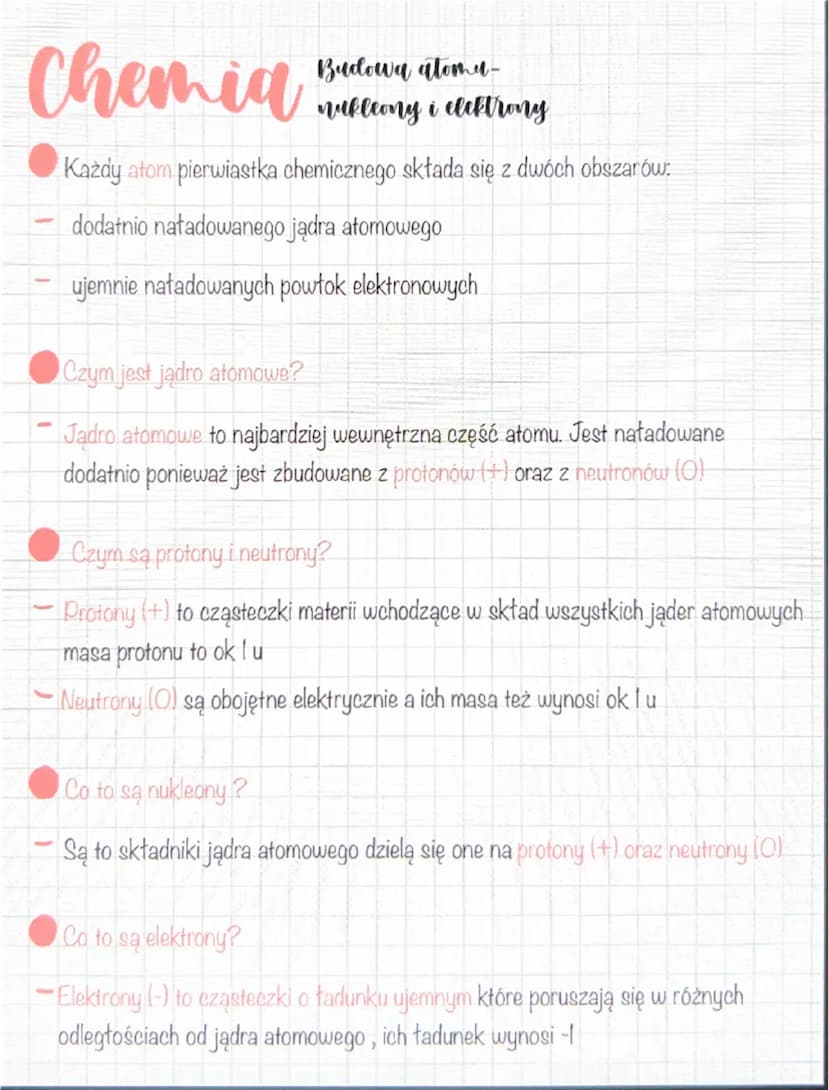 Chemia
Budowa atomu-
nukleony i elektrony
Każdy atom pierwiastka chemicznego składa się z dwóch obszarów:
- dodatnio naładowanego jądra atomowego
- ujemnie naładowanych powłok elektronowych
Czym jest jądro atomowe?
- Jądro atomowe to najbardziej wewnętrzna część atomu. Jest naładowane
dodatnio ponieważ jest zbudowane z protonów (+) oraz z neutronów (0)
Czym są protony i neutrony?
- Protony (+) to cząsteczki materii wchodzące w skład wszystkich jąder atomowych
masa protonu to ok 1 u
- Neutrony (0) są obojętne elektrycznie a ich masa też wynosi ok 1 u
Co to są nukleony ?
- Są to składniki jądra atomowego dzielą się one na protony (+) oraz neutrony (0)
Co to są elektrony?
- Elektrony (-) to cząsteczki o ładunku ujemnym które poruszają się w różnych
odległościach od jądra atomowego , ich ładunek wynosi -1